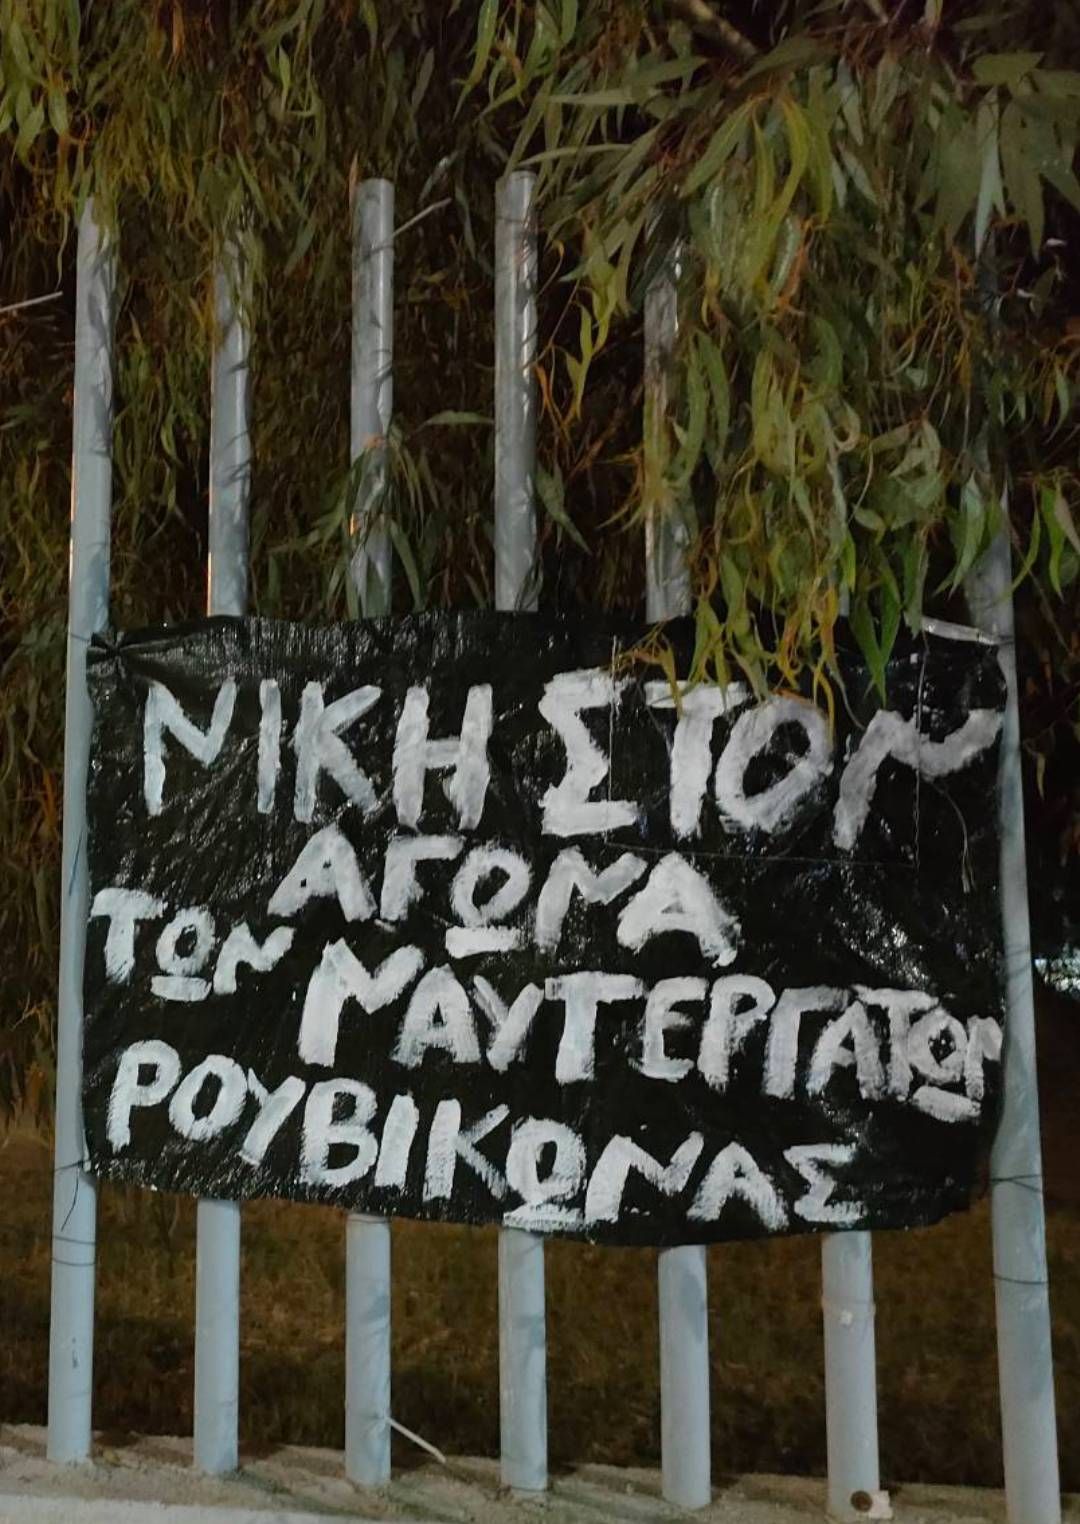 ΝΙΚΗ ΣΤΟΝ
ΑΓΩΝΑ
ΤΩΝ ΜΑΥΤΕΡΓΑΤΩΝ
ΡΟΥΒΙΚΩΝΑΣ